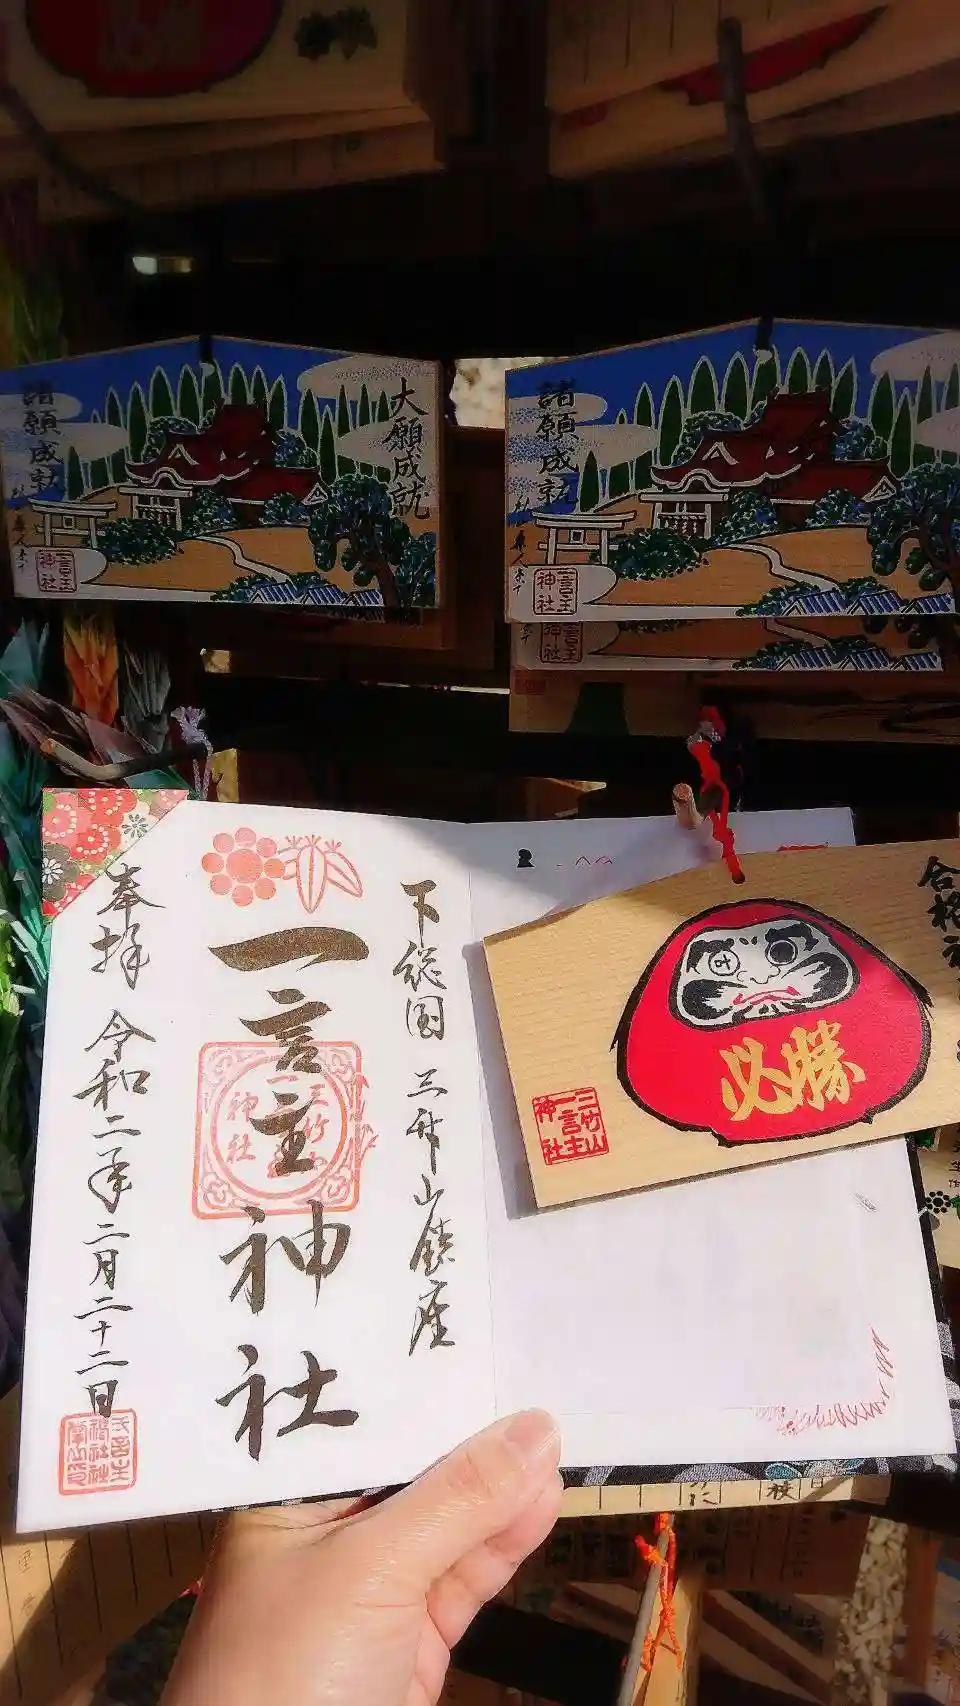 大願成就
諸願成就
一言主
神社
諸願成就
一言主
神社
一言主
神社
下総国 三竹山鎮座
一言主神社
三竹山
一言主
神社
奉拝 令和二年二月二十二日
合格祈
叶
必勝
三竹山
一言主
神社